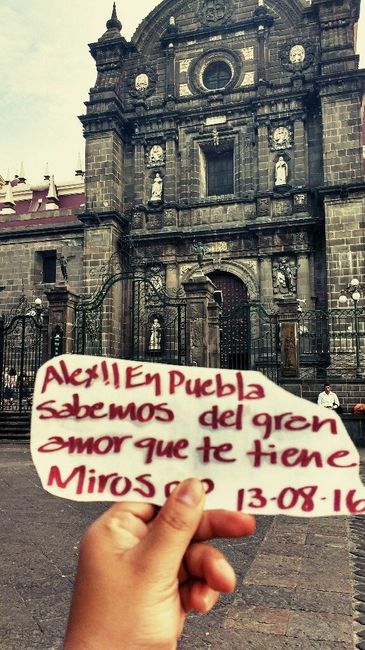 Alex!! En Puebla
sabemos del gran
amor que te tiene
13-08-16